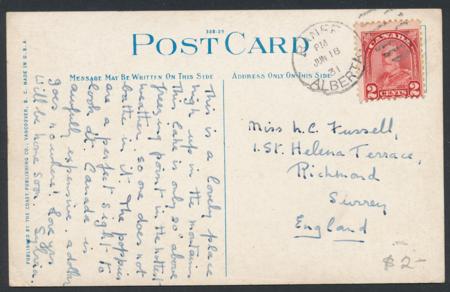 338-29
POST CARD
MESSAGE MAY BE WRITTEN ON THIS SIDE
ADDRESS ONLY ON THIS SIDE
BANFF
PM
JUN 18
31
ALBERTA
CANADA
2 CENTS 2
This is a lovely place
high up in the mountains
This lake is only 50° above
freezing point in the hottest
weather, so one does not
bathe in it. The poppies
are a perfect sight to
look at. Canada is
awfully expensive. a dollar
goes no where! Love yrs
will be home soon. Sylvia.
Miss L.C. Fussell,
1. St. Helena Terrace,
Richmond
Surrey
England
$2-
BY THE COAST PUBLISHING CO. VANCOUVER, B. C. MADE IN U.S.A.